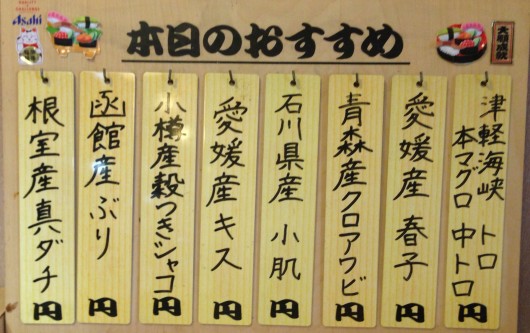 Asahi
本日のおすすめ
大願成就
津軽海峡 トロ
本マグロ 中トロ
円
愛媛産 春子
円
青森産クロアワビ
円
石川県産 小肌
円
愛媛産キス
円
小樽産穀つきシャコ
円
函館産ぶり
円
根室産真ダチ
円